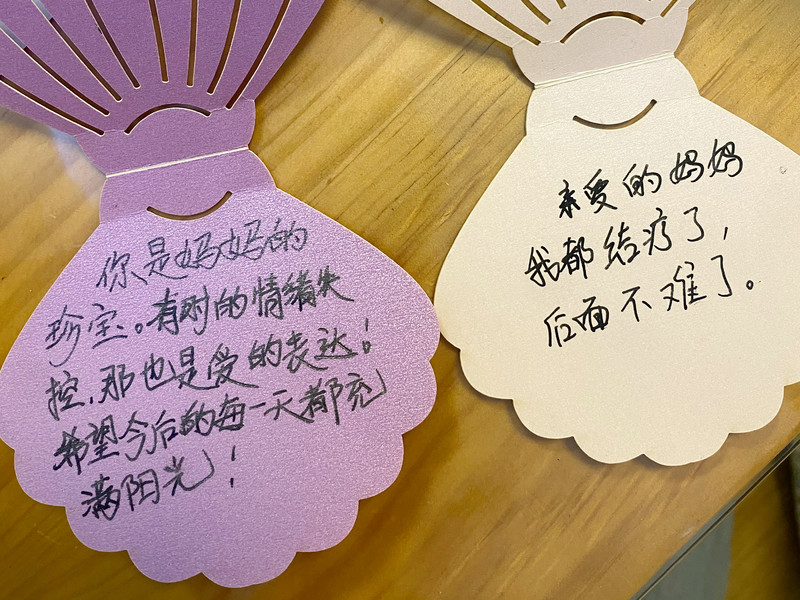 你是妈妈的
珍宝。有时的情绪失
控,那也是爱的表达!
希望今后的每一天都充
满阳光!
亲爱的妈妈
我都结疗了,
后面不难了。